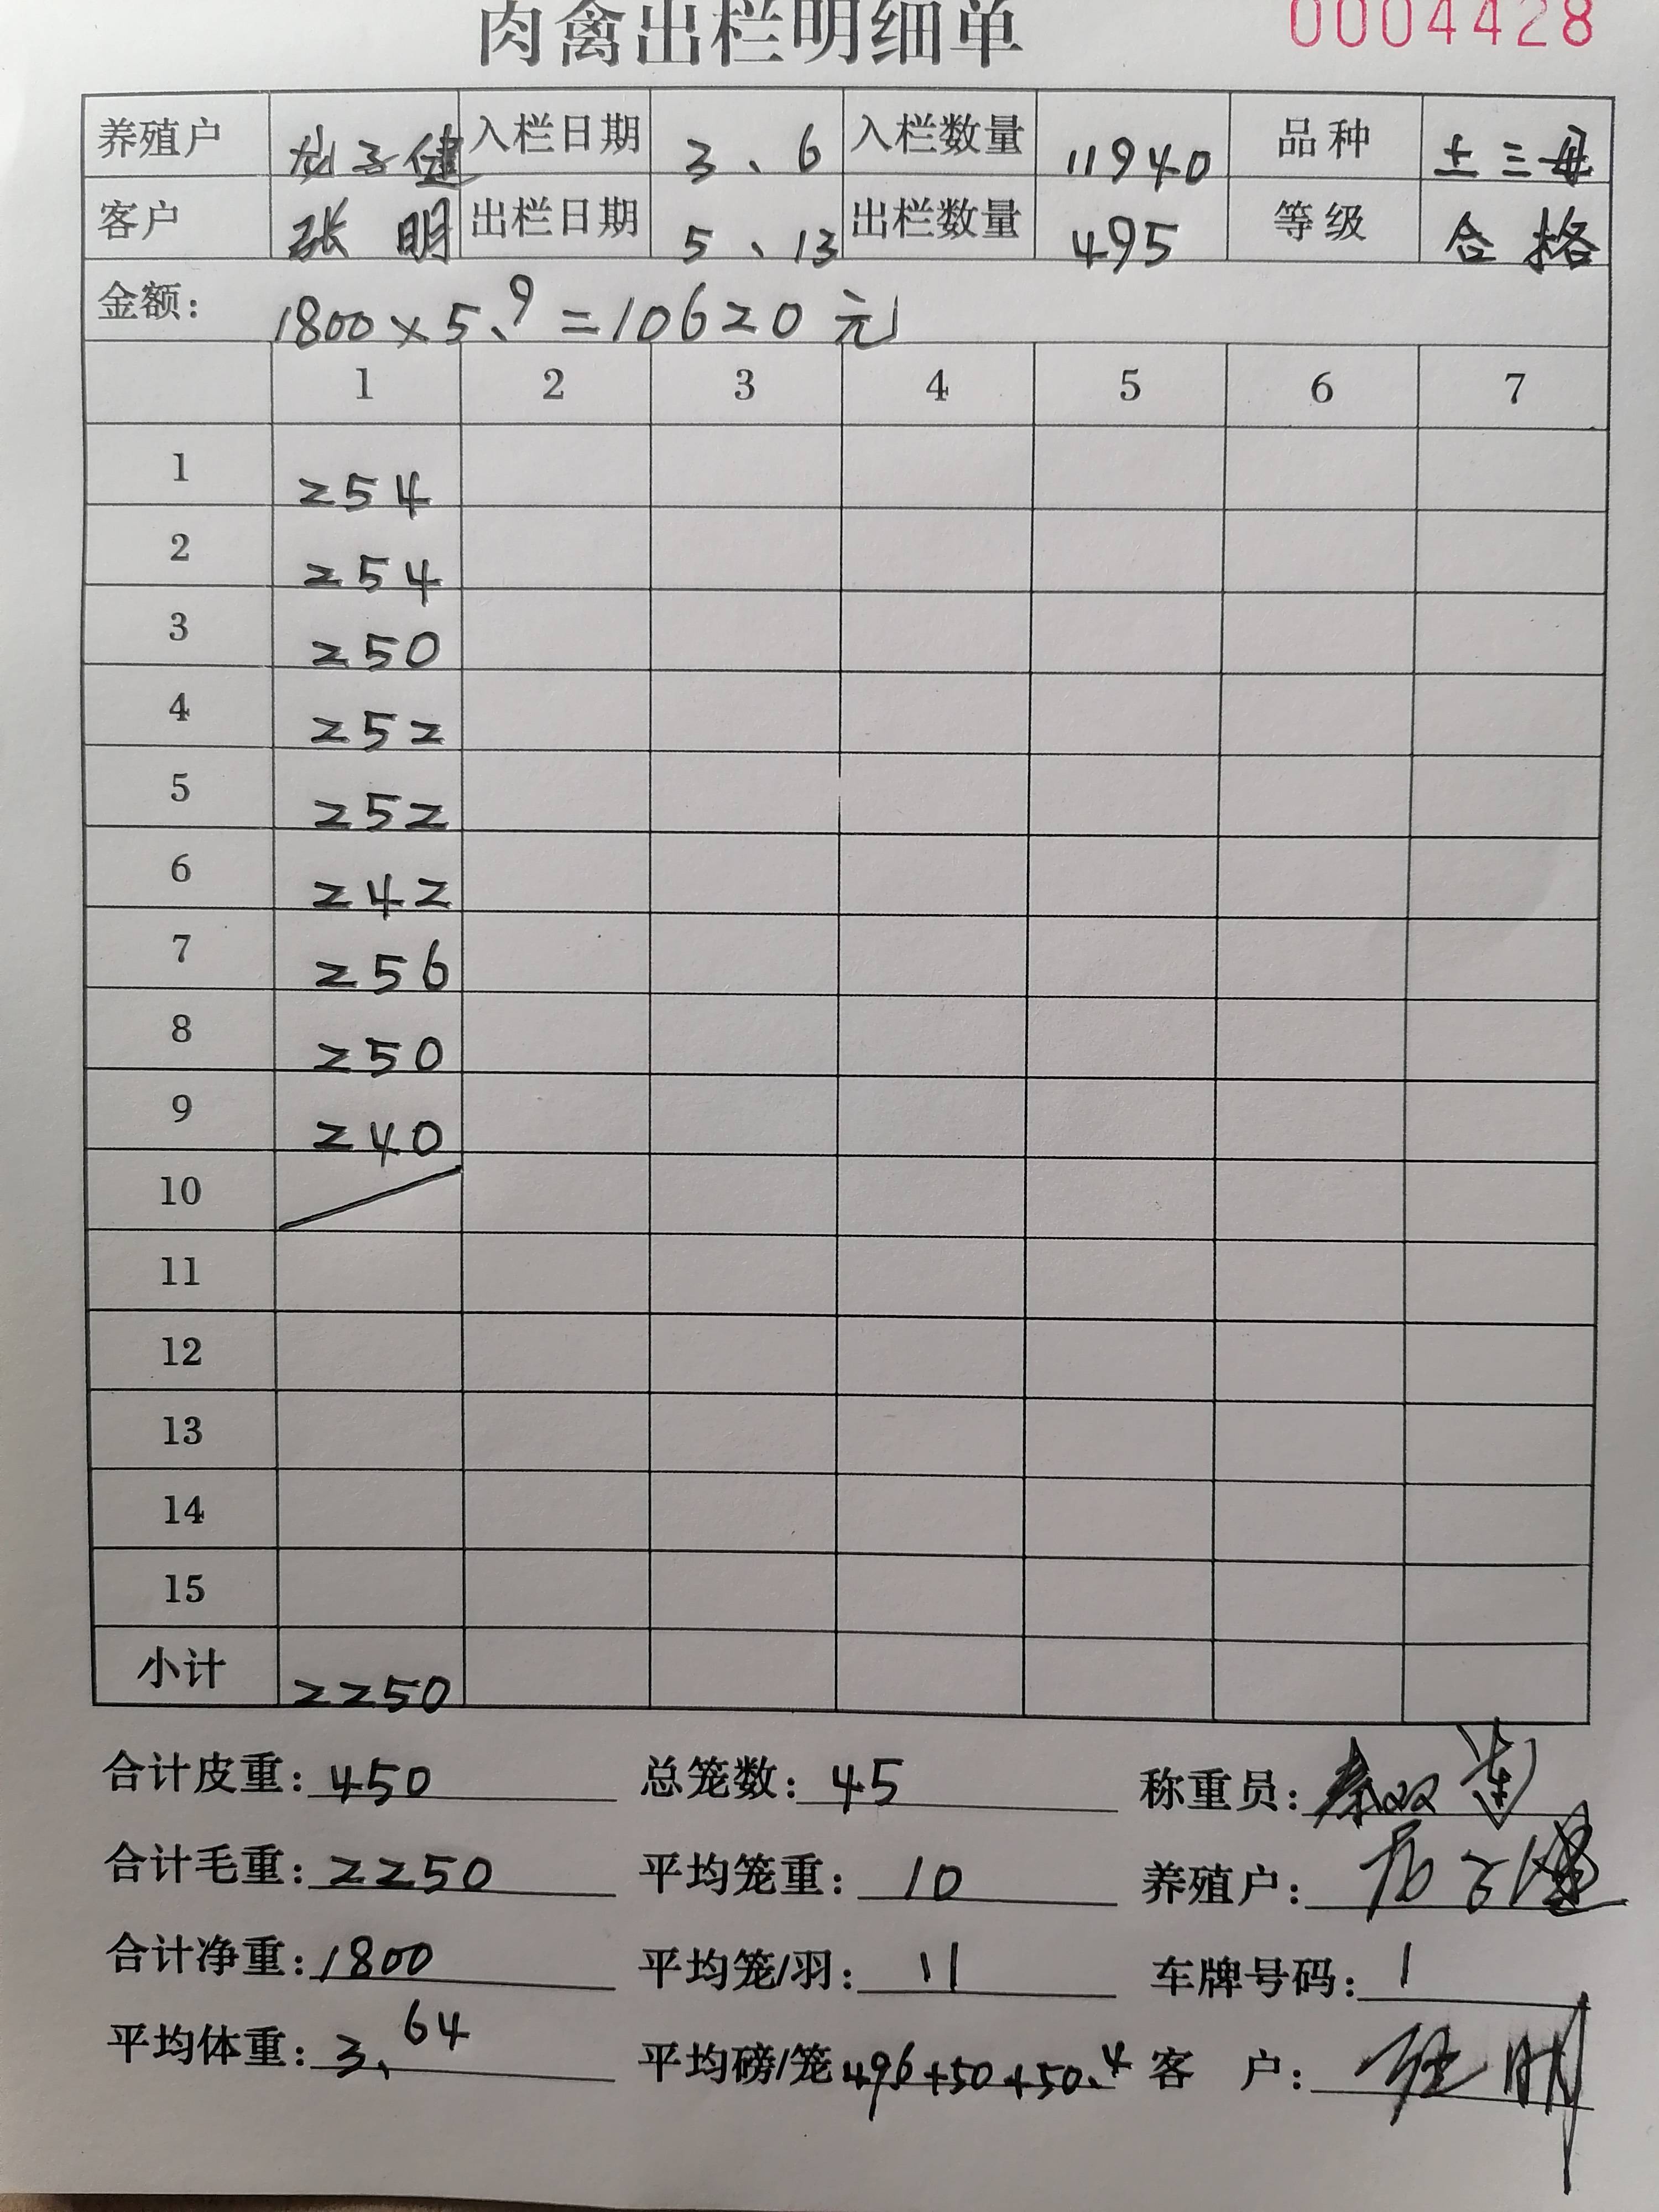 肉禽出栏明细单 0004428
养殖户 龙子健 入栏日期 3、6 入栏数量 11940 品种 土三母
客户 张明 出栏日期 5、13 出栏数量 495 等级 合格
金额: 1800×5.9=10620元
1 2 3 4 5 6 7
1 254
2 254
3 250
4 252
5 252
6 242
7 256
8 250
9 240
10
11
12
13
14
15
小计 2250
合计皮重: 450 总笼数: 45 称重员: 秦双莲
合计毛重: 2250 平均笼重: 10 养殖户:
合计净重: 1800 平均笼/羽: 11 车牌号码: 1
平均体重: 3.64 平均磅/笼 496+50+50.4 客户: 张明